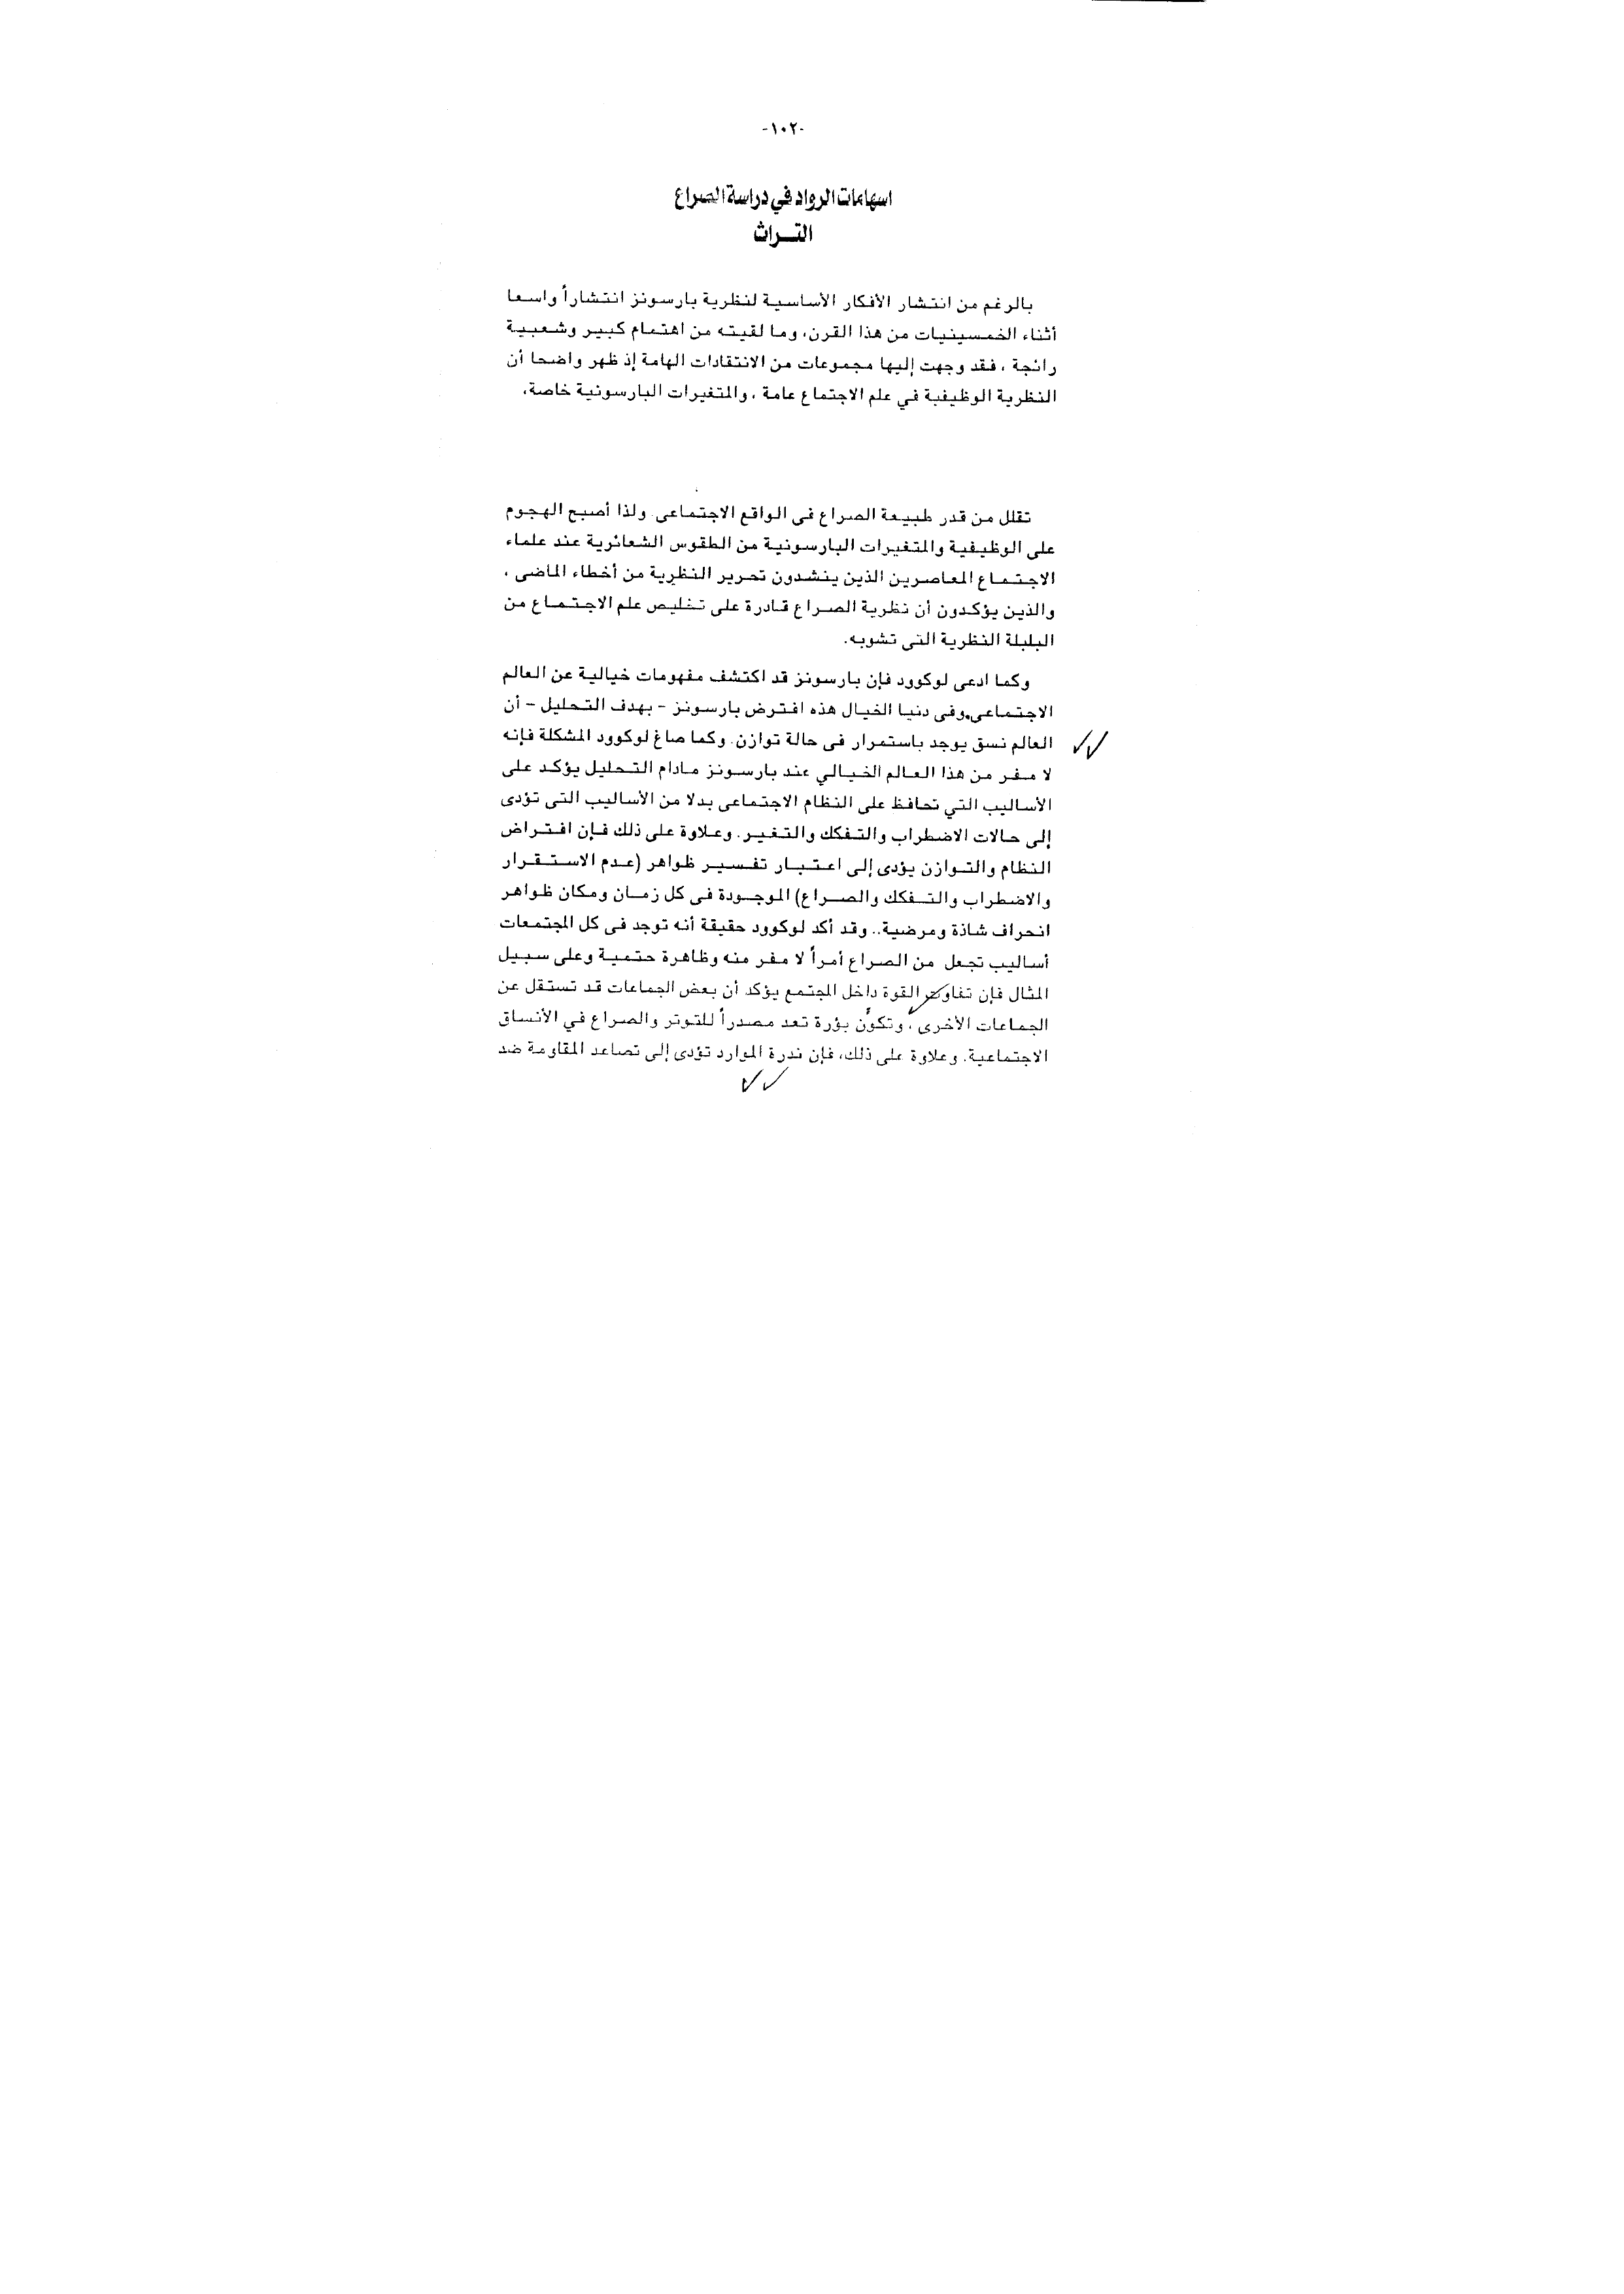 -١٠٢-
اسهامات الرواد في دراسة الصراع
التــراث
بالرغم من انتشار الأفكار الأساسية لنظرية بارسونز انتشاراً واسعا
أثناء الخمسينيات من هذا القرن، وما لقيته من اهتمام كبير وشعبية
رائجة ، فقد وجهت إليها مجموعات من الانتقادات الهامة إذ ظهر واضحا أن
النظرية الوظيفية في علم الاجتماع عامة ، والمتغيرات البارسونية خاصة،
تقلل من قدر طبيعة الصراع فى الواقع الاجتماعى. ولذا أصبح الهجوم
على الوظيفية والمتغيرات البارسونية من الطقوس الشعائرية عند علماء
الاجتماع المعاصرين الذين ينشدون تحرير النظرية من أخطاء الماضى ،
والذين يؤكدون أن نظرية الصراع قادرة على تخليص علم الاجتماع من
البلبلة النظرية التى تشوبه.
وكما ادعى لوكوود فإن بارسونز قد اكتشف مفهومات خيالية عن العالم
الاجتماعى.وفى دنيا الخيال هذه افترض بارسونز - بهدف التحليل - أن
العالم نسق يوجد باستمرار فى حالة توازن. وكما صاغ لوكوود المشكلة فإنه
لا مفر من هذا العالم الخيالي عند بارسونز مادام التحليل يؤكد على
الأساليب التي تحافظ على النظام الاجتماعى بدلا من الأساليب التى تؤدى
إلى حالات الاضطراب والتفكك والتغير. وعلاوة على ذلك فإن افتراض
النظام والتوازن يؤدى إلى اعتبار تفسير ظواهر (عدم الاستقرار
والاضطراب والتفكك والصراع) الموجودة فى كل زمان ومكان ظواهر
انحراف شاذة ومرضية.. وقد أكد لوكوود حقيقة أنه توجد فى كل المجتمعات
أساليب تجعل من الصراع أمراً لا مفر منه وظاهرة حتمية وعلى سبيل
المثال فإن تفاوت القوة داخل المجتمع يؤكد أن بعض الجماعات قد تستقل عن
الجماعات الأخرى ، وتكوُّن بؤرة تعد مصدراً للتوتر والصراع في الأنساق
الاجتماعية. وعلاوة على ذلك، فإن ندرة الموارد تؤدى إلى تصاعد المقاومة ضد